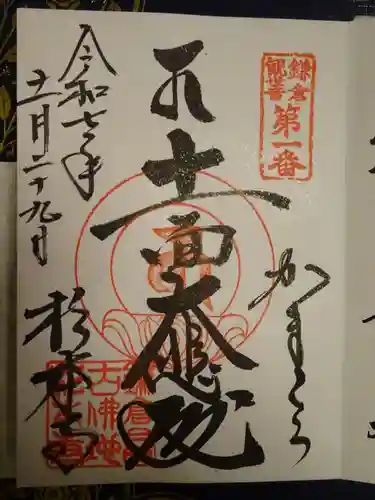 鎌倉
観音
第一番
かまくら
十一面大悲殿
令和七年
十一月二十九日
杉本寺